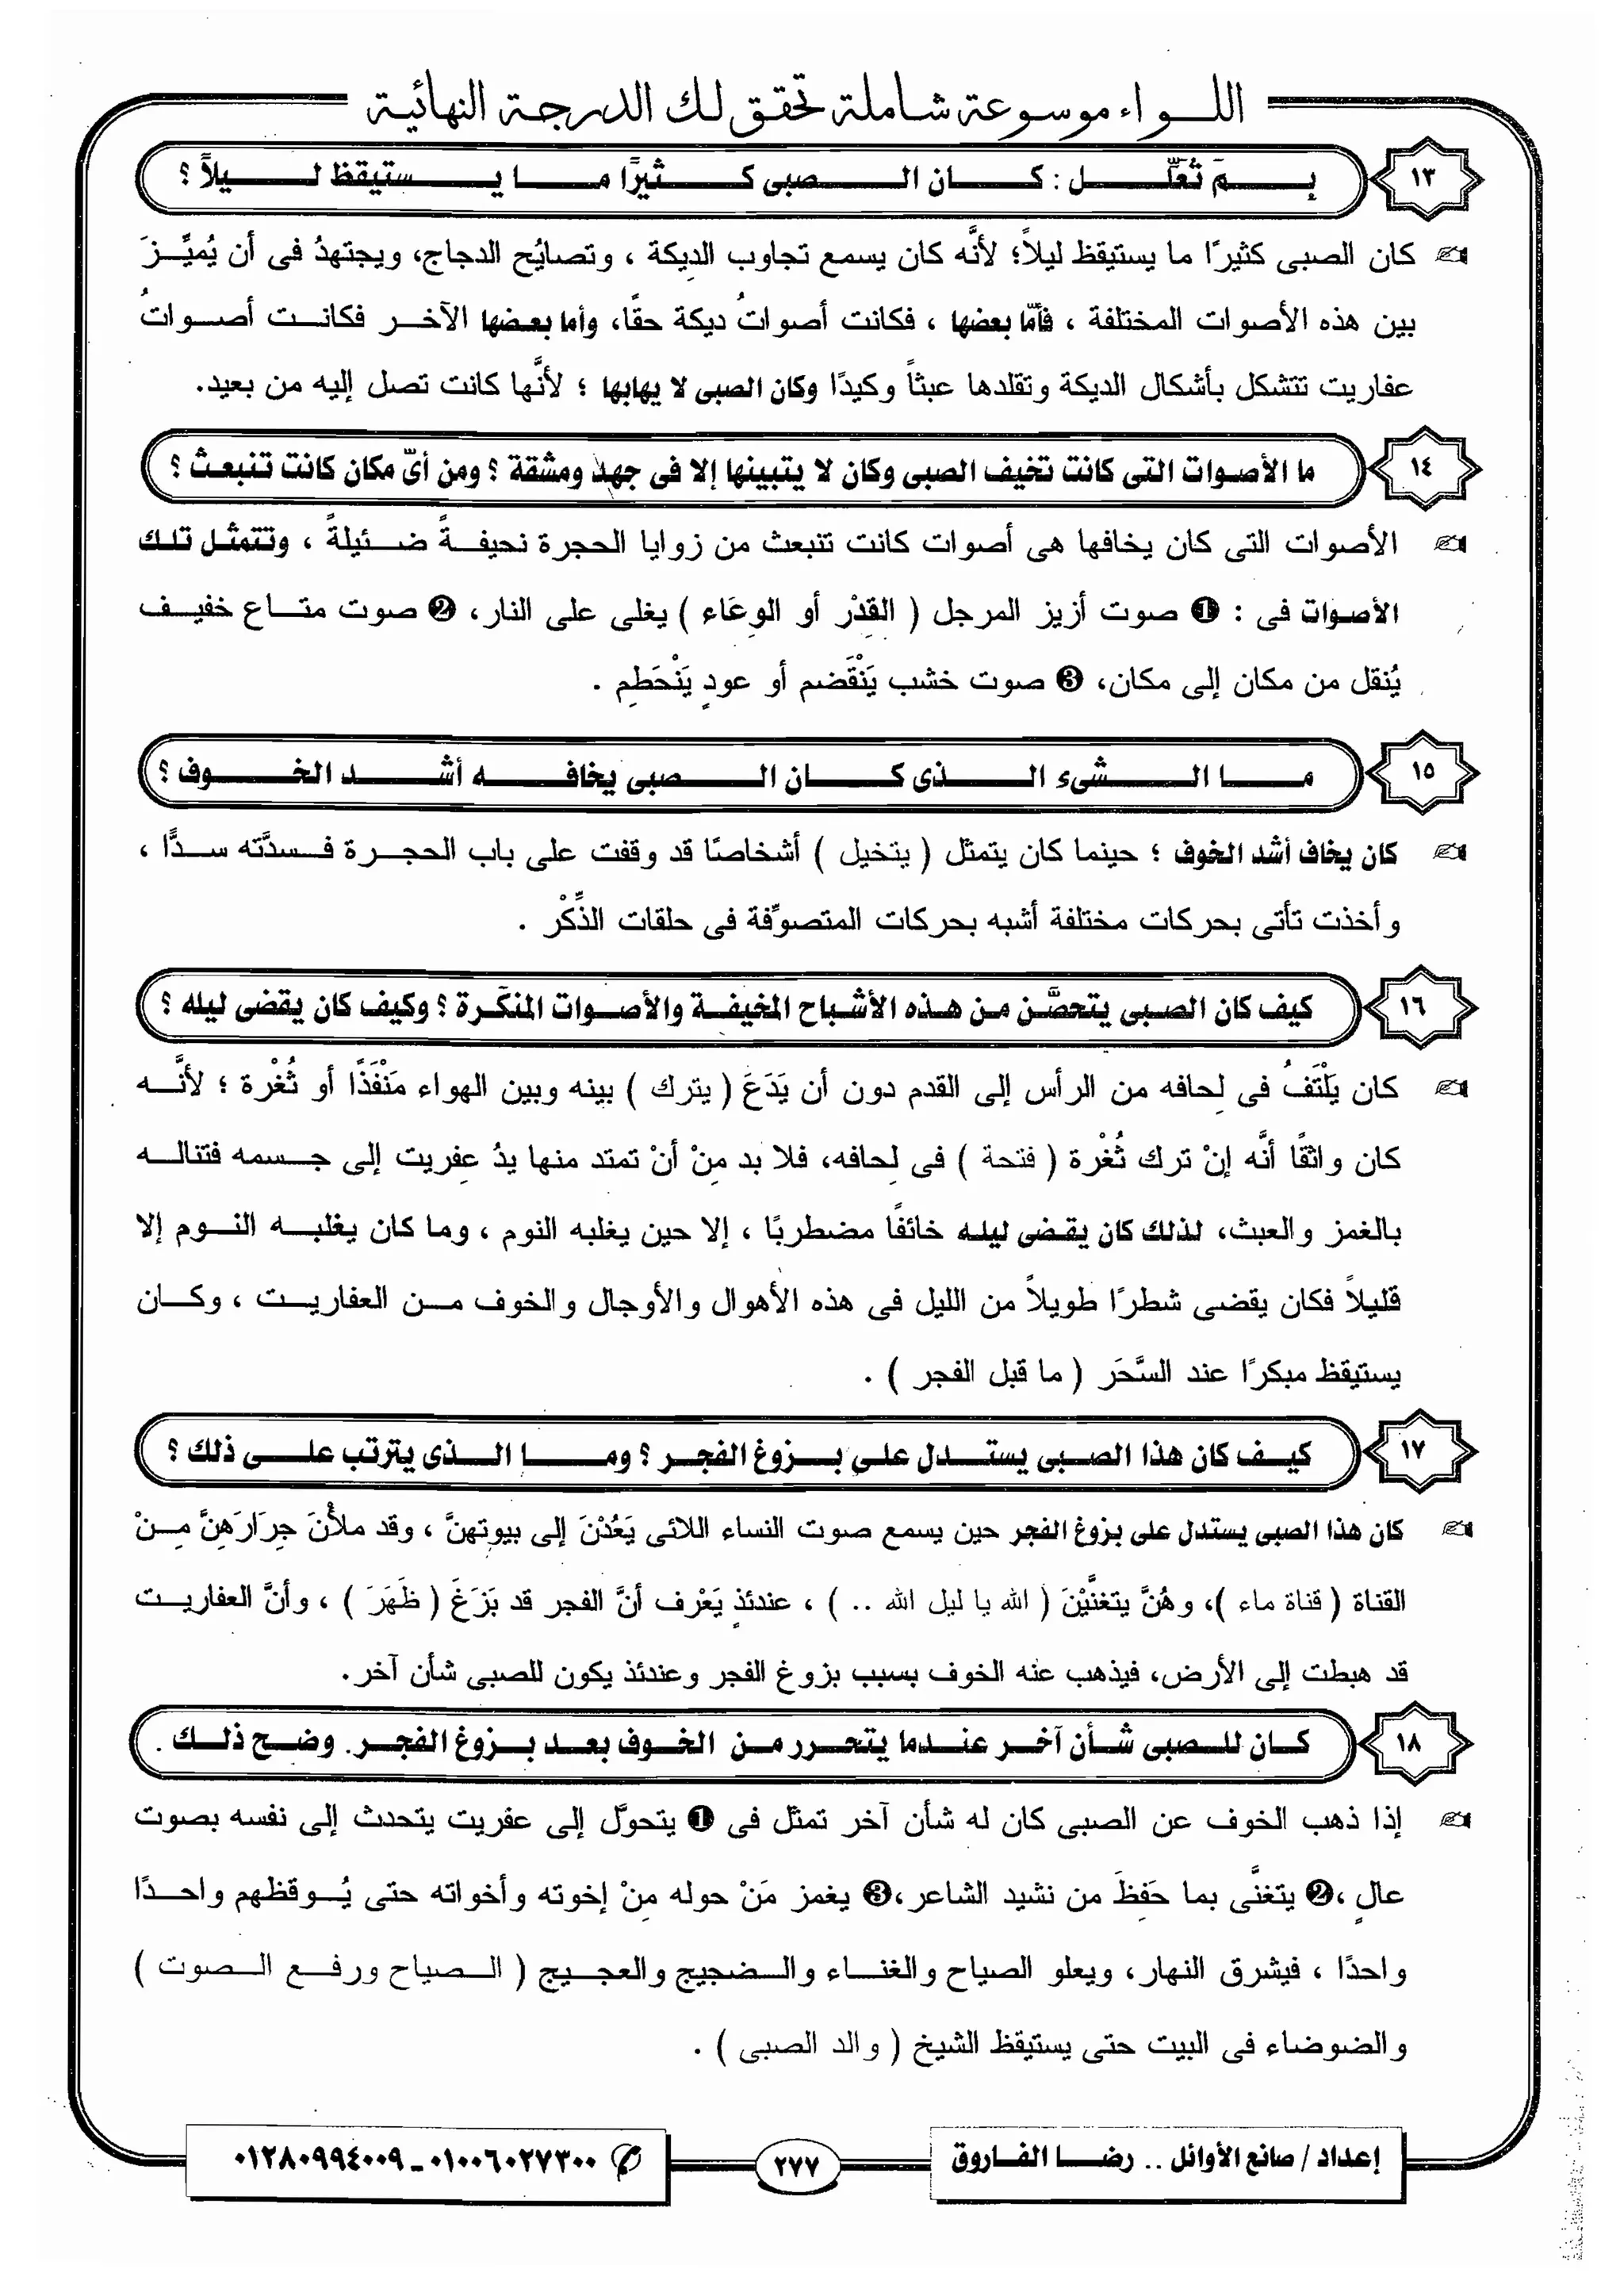 اللواء موسوعة شاملة تحقق لك الدرجة النهائية
١٣ بِمَ تُعَلِّل : كان الصبى كثيرًا ما يستيقظ ليلاً ؟
كان الصبى كثيرًا ما يستيقظ ليلاً؛ لأنَّه كان يسمع تجاوب الديكة ، وتصايُح الدجاج، ويجتهدُ فى أن يُميِّزَ
بين هذه الأصوات المختلفة ، فأمَّا بعضها ، فكانت أصواتُ ديكة حقًا، وأما بعضها الآخر فكانت أصواتُ
عفاريت تتشكل بأشكال الديكة وتقلدها عبثاً وكيدًا وكان الصبى لا يهابها ؛ لأنَّها كانت تصل إليه من بعيد.
١٤ ما الأصوات التى كانت تخيف الصبى وكان لا يتبينها إلا فى جهد ومشقة ؟ ومن أىّ مكان كانت تنبعث ؟
الأصوات التى كان يخافها هى أصوات كانت تنبعث من زوايا الحجرة نحيفةً ضئيلةً ، وتتمثل تلك
الأصوات فى : ❶ صوت أزيز المرجل ( القِدْر أو الوِعَاء ) يغلى على النار، ❷ صوت متاع خفيف
يُنقل من مكان إلى مكان، ❸ صوت خشب يَنْقَضم أو عودٍ يَنْحَطِم .
١٥ ما الشىء الذى كان الصبى يخافه أشد الخوف ؟
كان يخاف أشد الخوف ؛ حينما كان يتمثل ( يتخيل ) أشخاصًا قد وقفت على باب الحجرة فسدَّته سدًّا ،
وأخذت تأتى بحركات مختلفة أشبه بحركات المتصوِّفة فى حلقات الذِّكْر .
١٦ كيف كان الصبى يتحصَّن من هذه الأشباح المخيفة والأصوات المنكَرة ؟ وكيف كان يقضى ليله ؟
كان يَلْتَفُ فى لِحافه من الرأس إلى القدم دون أن يَدَعَ ( يترك ) بينه وبين الهواء مَنْفَذًا أو ثُغْرة ؛ لأنَّه
كان واثقًا أنَّه إنْ ترك ثُغْرة ( فتحة ) فى لِحافه، فلا بد مِنْ أنْ تمتد منها يدُ عفريت إلى جسمه فتناله
بالغمز والعبث، لذلك كان يقضى ليله خائفًا مضطربًا ، إلا حين يغلبه النوم ، وما كان يغلبه النوم إلا
قليلاً فكان يقضى شطرًا طويلاً من الليل فى هذه الأهوال والأوجال والخوف من العفاريت ، وكان
يستيقظ مبكرًا عند السَّحَر ( ما قبل الفجر ) .
١٧ كيف كان هذا الصبى يستدل على بزوغ الفجر ؟ وما الذى يترتب على ذلك ؟
كان هذا الصبى يستدل على بزوغ الفجر حين يسمع صوت النساء اللائى يَعُدْنَ إلى بيوتهِنَّ ، وقد ملأْنَ جِرَارَهِنَّ مِنْ
القناة ( قناة ماء )، وهُنَّ يتغنَّيْنَ ( الله يا ليل الله .. ) ، عندئذٍ يَعْرف أنَّ الفجر قد بَزَغَ ( ظَهَرَ ) ، وأنَّ العفاريت
قد هبطت إلى الأرض، فيذهب عنه الخوف بسبب بزوغ الفجر وعندئذ يكون للصبى شأن آخر.
١٨ كان للصبى شأن آخر عندما يتحرر من الخوف بعد بزوغ الفجر. وضح ذلك .
إذا ذهب الخوف عن الصبى كان له شأن آخر تمثل فى ❶ يتحوَّل إلى عفريت يتحدث إلى نفسه بصوت
عالٍ ،❷ يتغنَّى بما حَفِظَ من نشيد الشاعر،❸ يغمز مَنْ حوله مِنْ إخوته وأخواته حتى يُوقظهم واحدًا
واحدًا ، فيشرق النهار، ويعلو الصياح والغناء والضجيج والعجيج ( الصياح ورفع الصوت )
والضوضاء فى البيت حتى يستيقظ الشيخ ( والد الصبى ) .
إعداد / صانع الأوائل .. رضا الفاروق
٢٧٧
٠١٠٠٦٠٢٧٣٠٠ - ٠١٢٨٠٩٩٤٠٠٩